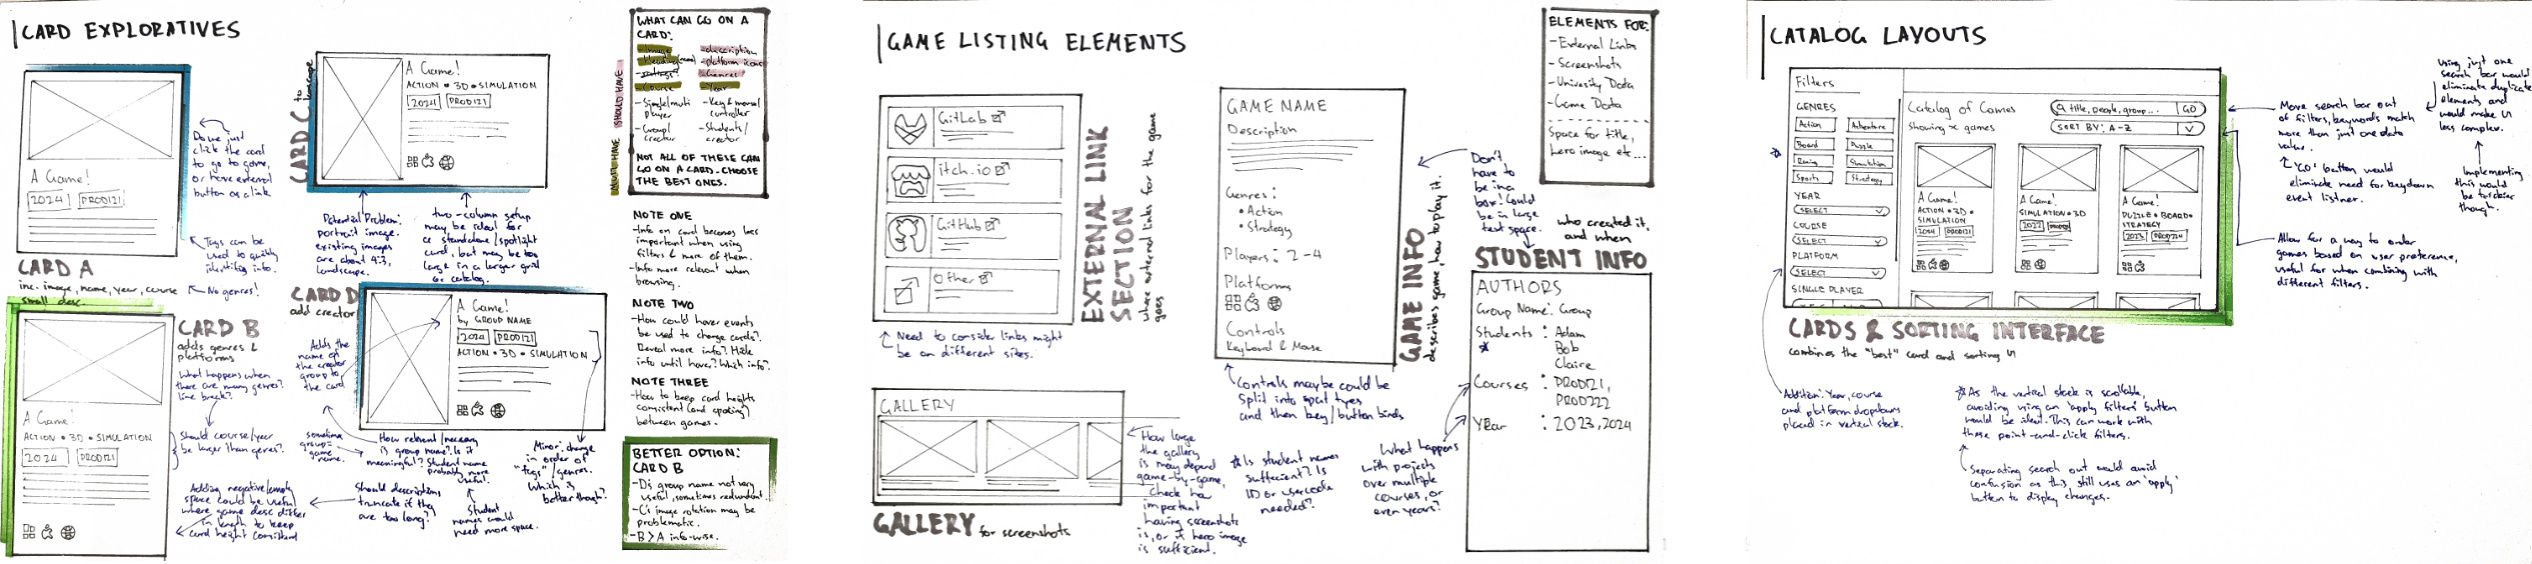 CARD EXPLORATIVES
A Game!
2024 PROD121
Do we just
click the card
to go to game,
or have external
button as a link
Tags can be
used to quickly
identify info.
CARD A
inc. image, name, year, course
small desc.
No genres!
CARD C to landscape
A Game!
ACTION • 3D • SIMULATION
2024 PROD121
Potential Problem:
portrait image.
existing images
are about 4:3,
landscape.
two-column setup
may be ideal for
a standalone/spotlight
card, but may be too
large in a larger grid
or catalog.
CARD B
adds genres &
platforms
What happens when
there are many genres?
line break?
A Game!
ACTION • 3D • SIMULATION
2024 PROD121
Should course/year
be larger than genres?
Adding negative/empty
space could be useful
where game desc differ
in length to keep
card height consistent
CARD D
add creator
A Game!
by GROUP NAME
2024 PROD121
ACTION • 3D • SIMULATION
Adds the
name of
the creator
group to
the card
sometimes
group=
game
name.
How relevant/necessary
is group name? Is it
meaningful? Student name
probably more
useful.
Should descriptions
truncate if they
are too long?
Student
names would
need more space.
Minor: change
in order of
"tags"/genres.
Which is
better though?
WHAT CAN GO ON A
CARD?
-Image
-Heading (name)
-Course
-Single/multi
player
-Group/
creator
-description
-platform icons
-Genres
-Year
-Key & mouse/
controller
-Students/
creator
NOT ALL OF THESE CAN
GO ON A CARD. CHOOSE
THE BEST ONES.
MUST HAVE
SHOULD HAVE
NOTE ONE
-Info on card becomes less
important when using
filters & more of them.
-Info more relevant when
browsing.
NOTE TWO
-How could hover events
be used to change cards?
Reveal more info? Hide
info until hover? Which info?
NOTE THREE
-How to keep card heights
consistent (and spacing)
between games.
BETTER OPTION:
CARD B
-D's group name not very
useful, sometimes redundant.
-C's image rotation may be
problematic.
-B > A info-wise.
GAME LISTING ELEMENTS
GitLab
itch.io
GitHub
Other
EXTERNAL LINK
SECTION
where external links for the game
goes
Need to consider links might
be on different sites.
GALLERY
GALLERY for screenshots
How large
the gallery
is may depend
game-by-game,
Check how
important
having screenshots
is, or if hero image
is sufficient.
GAME NAME
Description
Genres:
• Action
• Strategy
Players: 2-4
Platforms
Controls
Keyboard & Mouse
GAME INFO
describes game, how to play it.
Don't
have to
be in a
box! Could
be in large
text space.
Controls maybe could be
split into input types
and then key/button binds
Is student names
sufficient? Is
ID or usercode
needed?
ELEMENTS FOR:
-External Links
-Screenshots
-University Data
-Game Data
Space for title,
hero image etc...
who created it,
and when
STUDENT INFO
AUTHORS
Group Name: Group
Students : Adam
Bob
Claire
Courses : PROD121,
PROD222
Year : 2023, 2024
What happens
with projects
over multiple
courses, or
even years?
CATALOG LAYOUTS
Filters
GENRES
Action Adventure
Board Puzzle
Racing Simulation
Sports Strategy
YEAR
SELECT
COURSE
SELECT
PLATFORM
SELECT
SINGLE PLAYER
Catalog of Games
Showing x games
title, people, group... GO
SORT BY: A-Z
A Game!
ACTION • 3D •
SIMULATION
2024 PROD121
A Game!
SIMULATION • 3D
2022
A Game!
PUZZLE • BOARD •
STRATEGY
2023
CARDS & SORTING INTERFACE
combines the "best" card and sorting UI
Using just one
search bar would
eliminate duplicate
elements and
would make UI
less complex.
Move search bar out
of filters, keywords match
more than just one data
value.
'GO' button would
eliminate need for keydown
event listner.
Implementing
this would
be trickier
though.
Allow for a way to order
games based on user preference,
useful for when combining with
different filters.
Addition: Year, course
and platform dropdowns
placed in vertical stack.
As the vertical stack is scrollable,
avoiding using an 'apply filters' button
would be ideal. This can work with
these point-and-click filters.
Separating search out would avoid
confusion as this still uses an 'apply'
button to display changes.